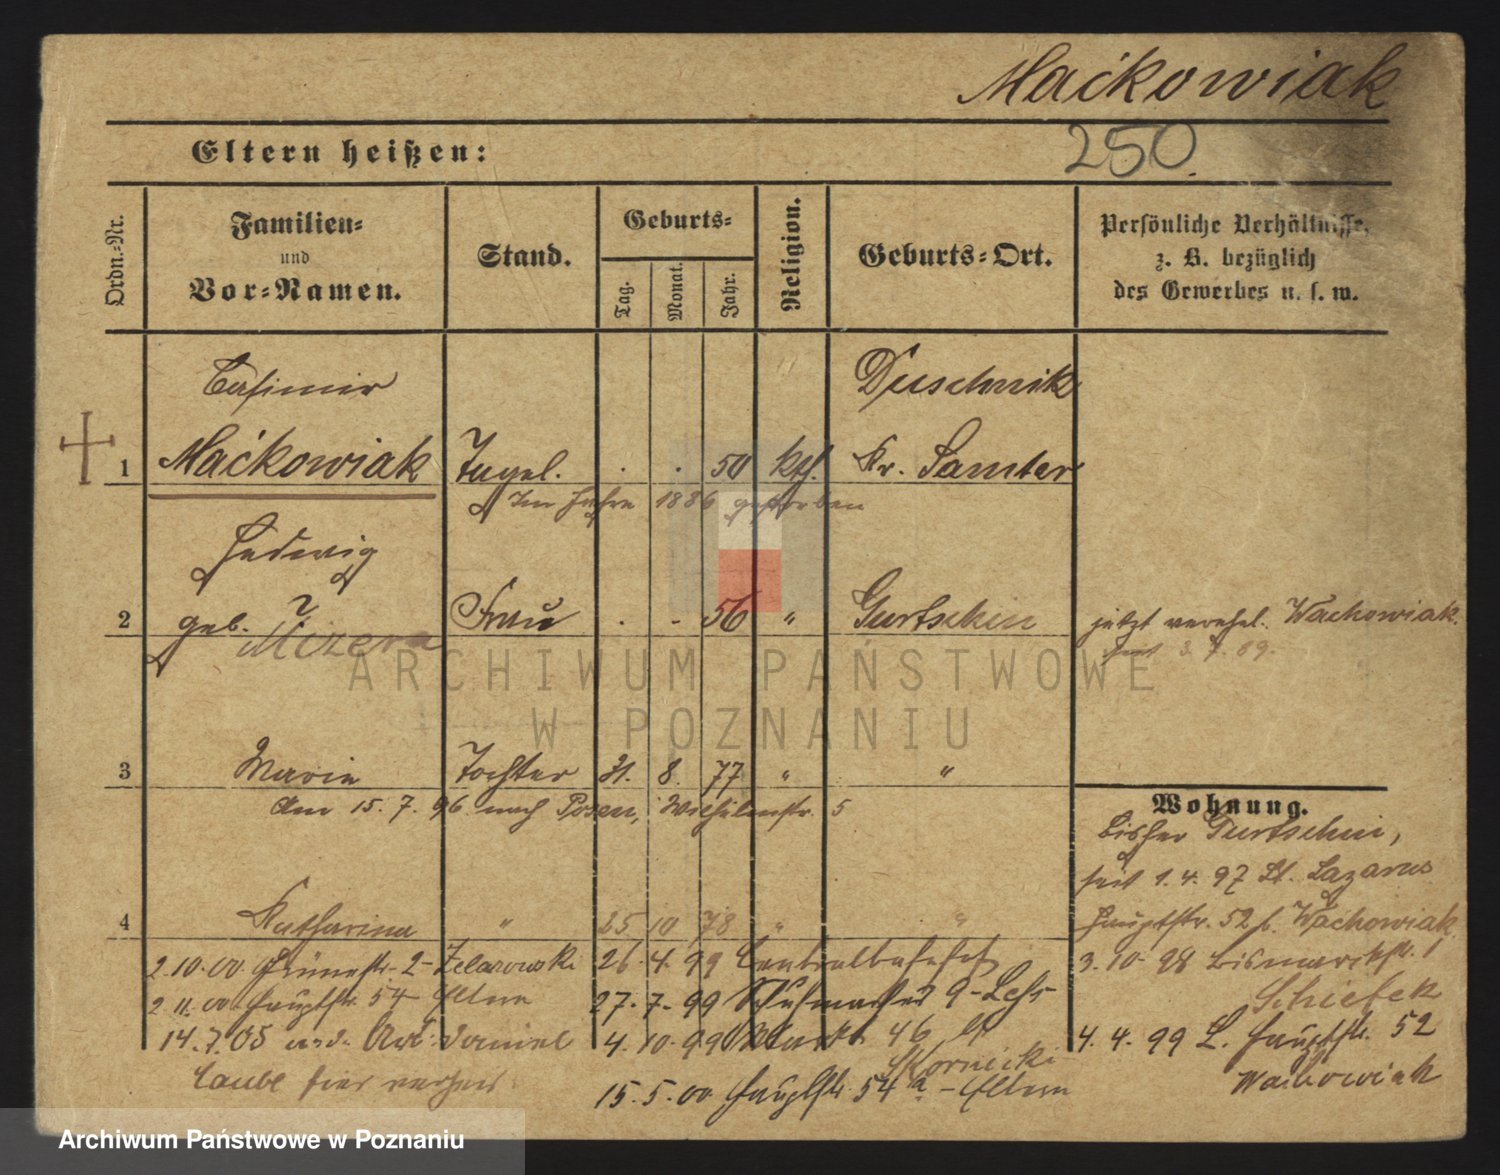 Maćkowiak
250.
Eltern heißen:
Ordn.=Nr.
Familien=
und
Vor=Namen.
Stand.
Geburts=
Tag.
Monat.
Jahr.
Religion.
Geburts=Ort.
Persönliche Verhältnisse,
z. B. bezüglich
des Gewerbes u. s. w.
Casimir Duschnik
1 Maćkowiak Tagel. . . 50 kth. Kr. Samter
Im Jahre 1886 gestorben
Hedwig
2 geb. ? Frau . - 56 " Gurtschin jetzt verehel. Wachowiak.
Mizera
seit 3. 7. 89.
ARCHIWUM PAŃSTWOWE
W POZNANIU
3 Marie Tochter 31. 8. 77 " "
Am 15. 7. 96 nach Posen, Wilhelmstr. 5
Wohnung.
bisher Gurtschin,
seit 1. 4. 97 St. Lazarus
Hauptstr. 52 b. Wachowiak
4 Katharina " 25 10 78 " "
3. 10. 98 Bismarckstr. 1
Schiefek
4. 4. 99 L. Hauptstr. 52
Wachowiak
26. 4. 99 Centralbahnhof
27. 7. 99 9
4. 10. 99 Markt 46
Skornicki
15. 5. 00 Hauptstr. 54 a - Eltern
2. 10. 00 2 - Zelazowski
2. 11. 00 Hauptstr. 54 Eltern
14. 7. 05 Arb. Daniel
Laube hier verh.
Archiwum Państwowe w Poznaniu